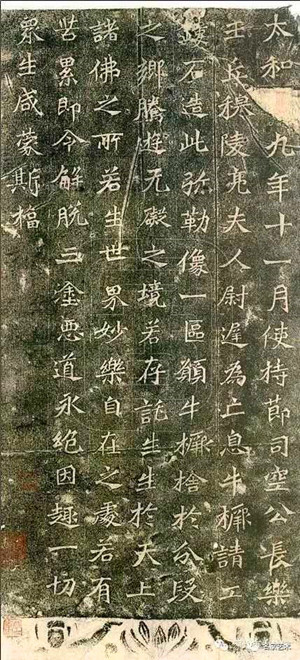 太和九年十一月使持節司空公長樂
王丘穆陵亮夫人尉遲為亡息牛橛請工
鏤石造此弥勒像一區願牛橛捨於分段
之鄉騰遊无礙之境若存託生生於天上
諸佛之所若生世界妙樂自在之處若有
苦累即令解脫三塗惡道永絕因趣一切
眾生咸蒙斯福